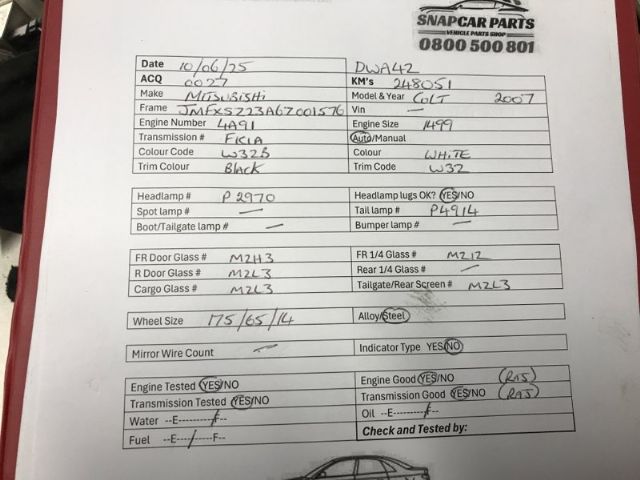 SNAPCAR PARTS
VEHICLE PARTS SHOP
0800 500 801
Date 10/06/25 DWA42
ACQ 0027 KM's 248051
Make MITSUBISHI Model & Year COLT 2007
Frame JMFXSZ23A6Z001576 Vin —
Engine Number 4A91 Engine Size 1499
Transmission # FICIA Auto/Manual
Colour Code W32B Colour WHITE
Trim Colour BLACK Trim Code W32
Headlamp # P2970 Headlamp lugs OK? YES/NO
Spot lamp # — Tail lamp # P4914
Boot/Tailgate lamp # — Bumper lamp # —
FR Door Glass # M2H3 FR 1/4 Glass # M212
R Door Glass # M2L3 Rear 1/4 Glass # —
Cargo Glass # M2L3 Tailgate/Rear Screen # M2L3
Wheel Size 175/65/14 Alloy/Steel
Mirror Wire Count — Indicator Type YES/NO
Engine Tested YES/NO Engine Good YES/NO (RAJ)
Transmission Tested YES/NO Transmission Good YES/NO (RAJ)
Water --E----------F-- Oil --E----------F--
Fuel --E----------F-- Check and Tested by: